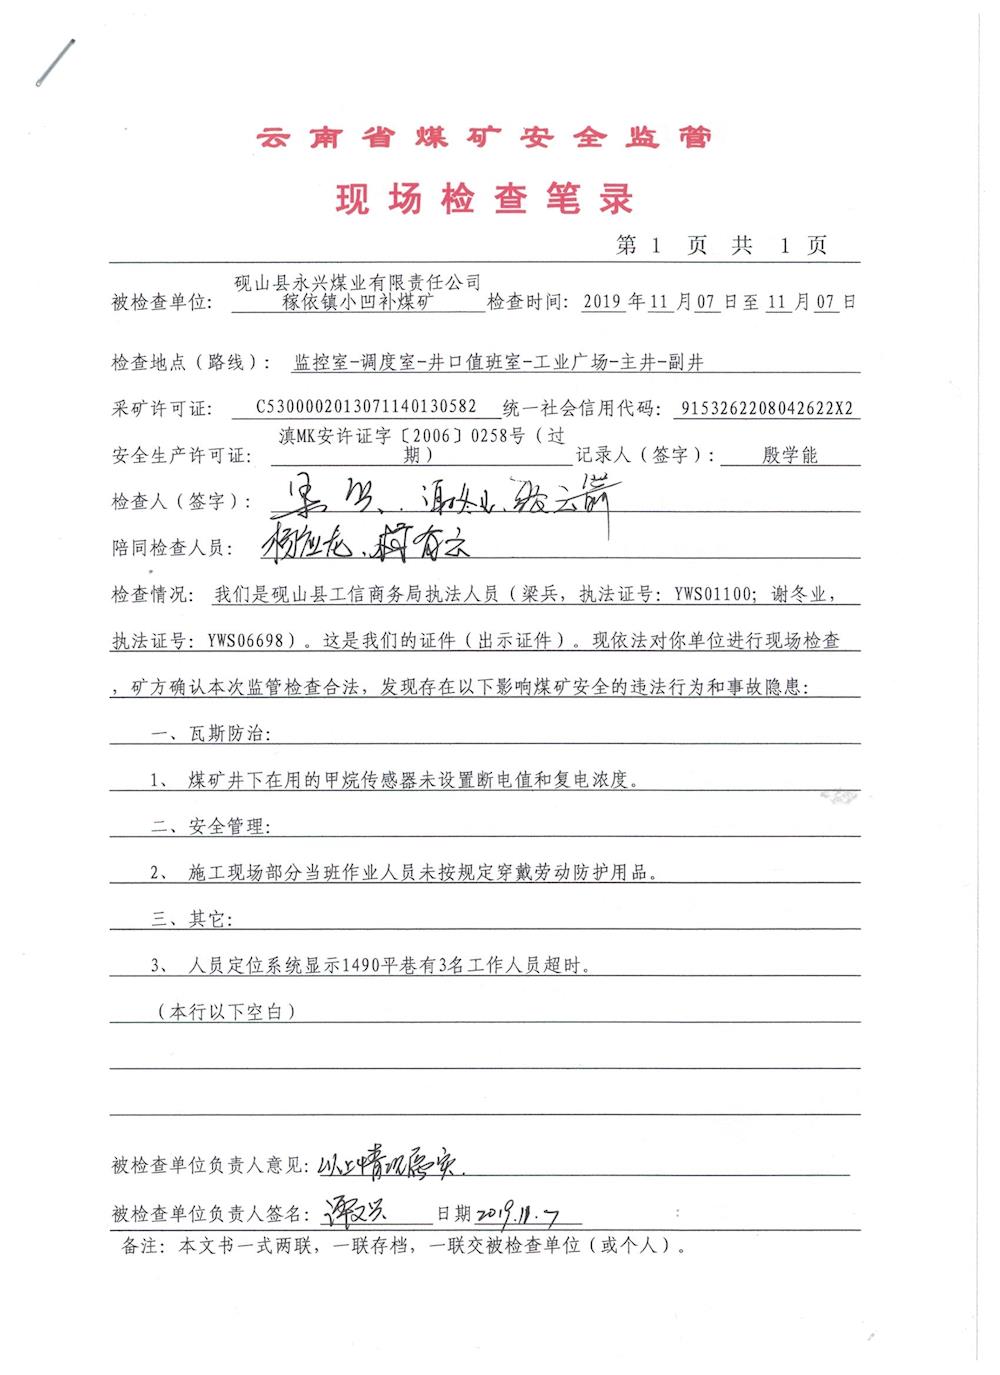 云南省煤矿安全监管
现场检查笔录
第 1 页 共 1 页
砚山县永兴煤业有限责任公司
被检查单位: 稼依镇小凹补煤矿 检查时间: 2019 年 11 月 07 日至 11 月 07 日
检查地点（路线）: 监控室-调度室-井口值班室-工业广场-主井-副井
采矿许可证: C5300002013071140130582 统一社会信用代码: 9153262208042622X2
滇MK安许证字〔2006〕0258号（过
安全生产许可证: 期） 记录人（签字）: 殷学能
检查人（签字）:
陪同检查人员: 杨应龙、柯有云
检查情况: 我们是砚山县工信商务局执法人员（梁兵, 执法证号: YWS01100; 谢冬业,
执法证号: YWS06698）。这是我们的证件（出示证件）。现依法对你单位进行现场检查
, 矿方确认本次监管检查合法, 发现存在以下影响煤矿安全的违法行为和事故隐患:
一、瓦斯防治:
1、 煤矿井下在用的甲烷传感器未设置断电值和复电浓度。
二、安全管理:
2、 施工现场部分当班作业人员未按规定穿戴劳动防护用品。
三、其它:
3、 人员定位系统显示1490平巷有3名工作人员超时。
（本行以下空白）
被检查单位负责人意见: 以上情况属实.
被检查单位负责人签名: 谭文兴 日期 2019.11.7
备注: 本文书一式两联, 一联存档, 一联交被检查单位（或个人）。